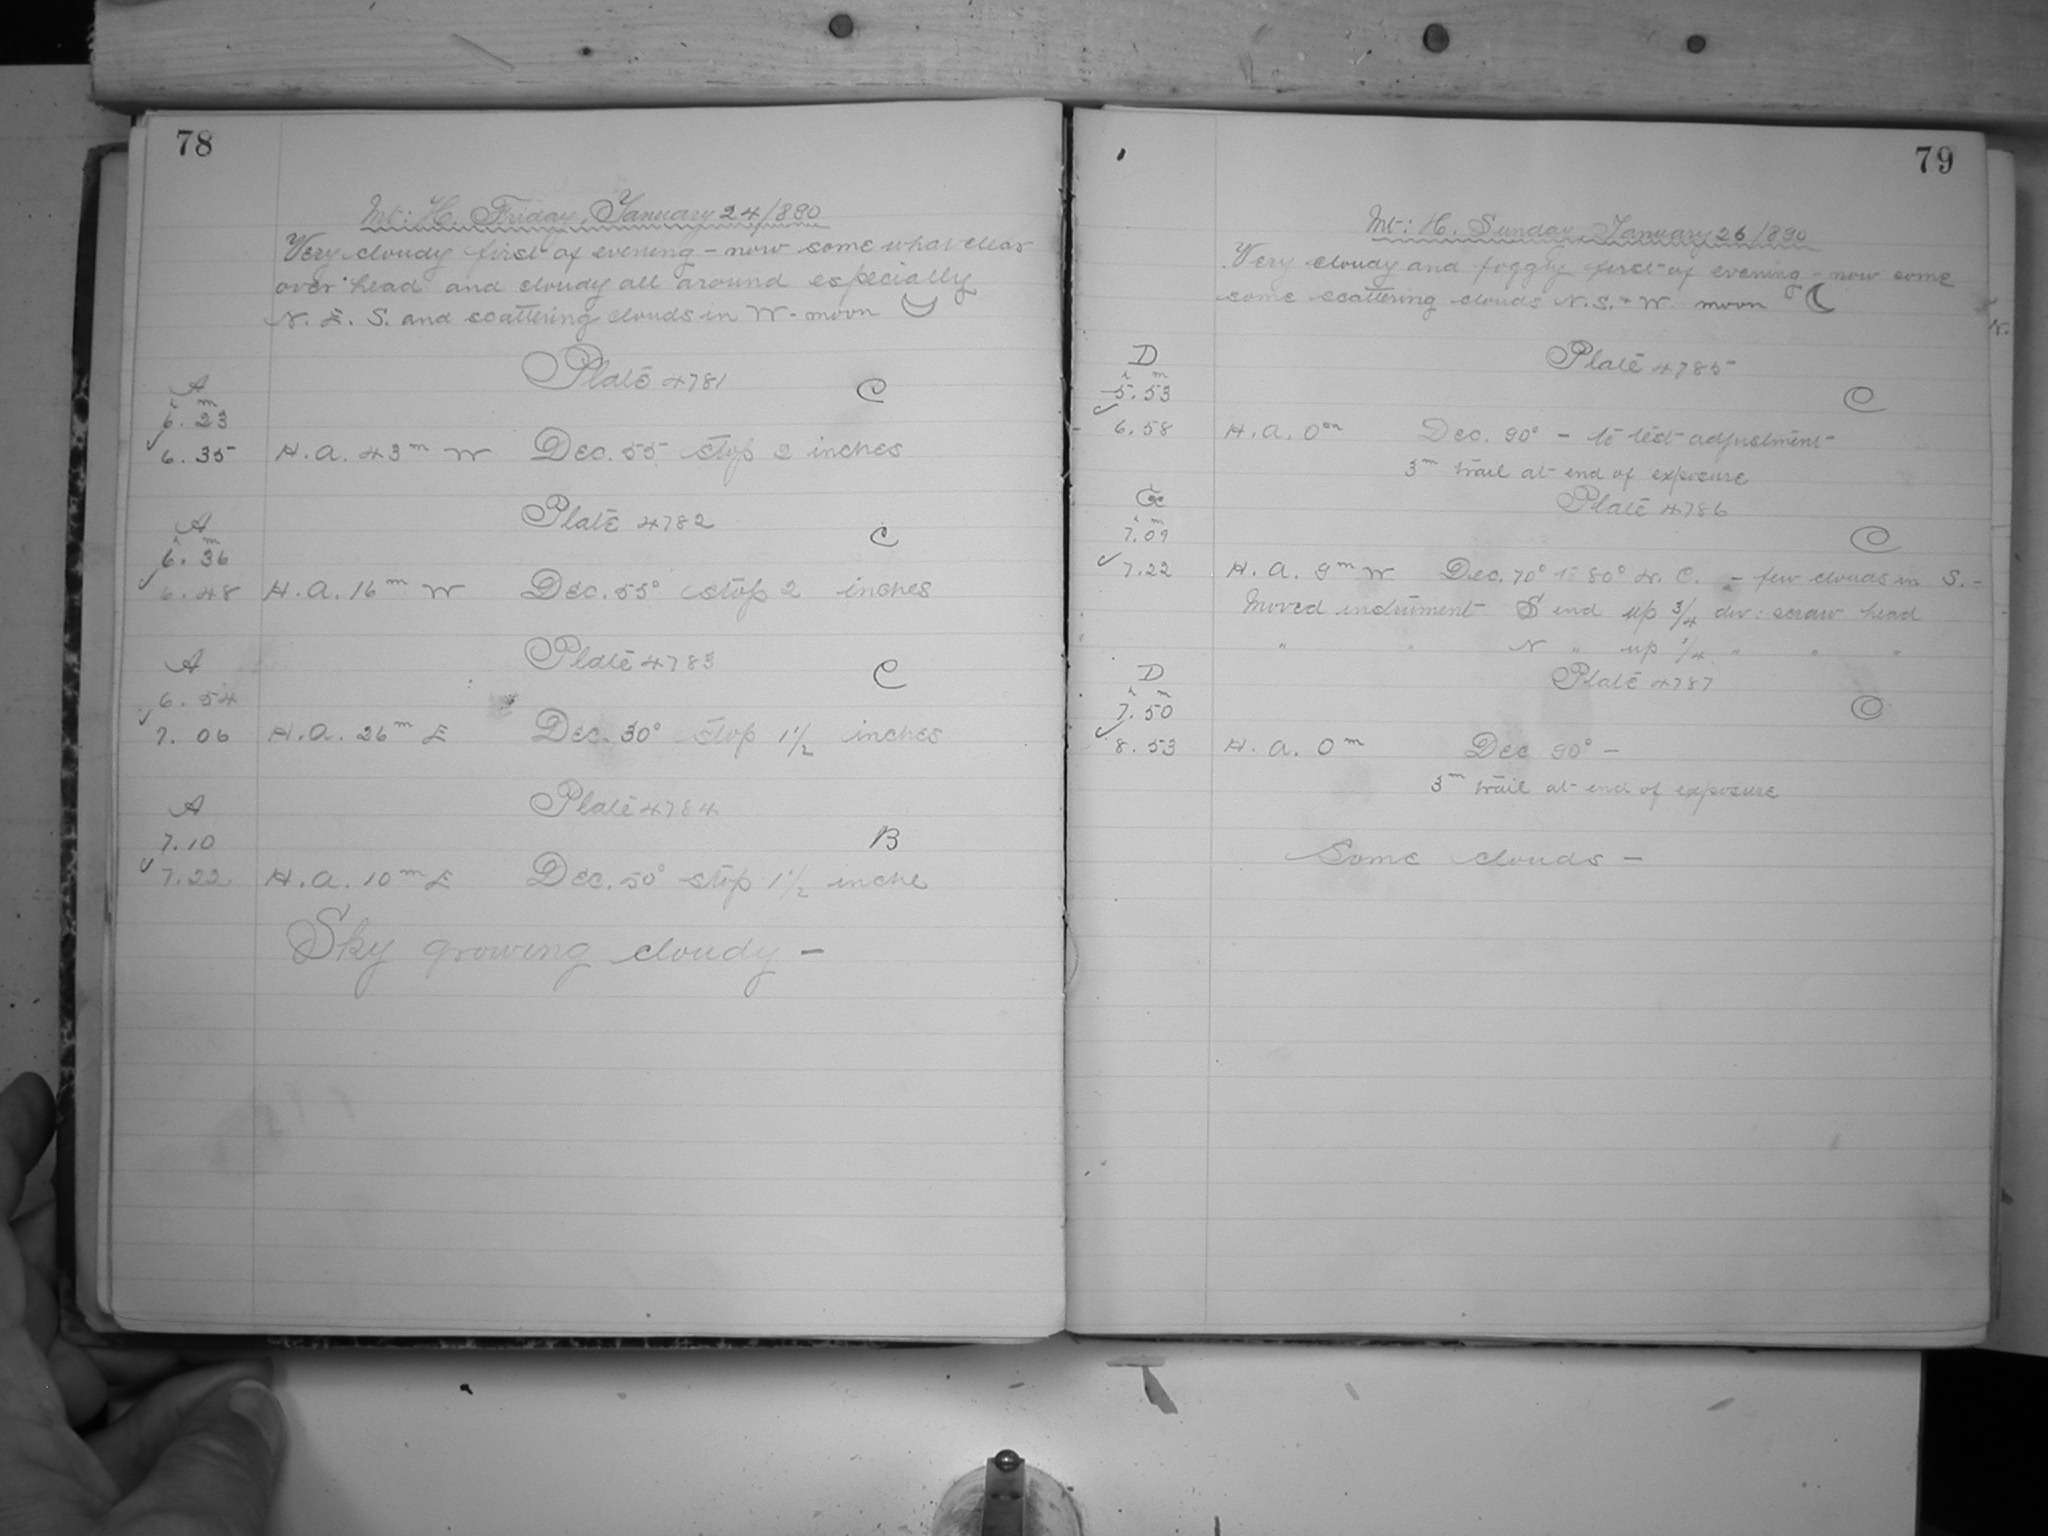 78
Mt: H. Friday, January 24/890
Very cloudy first of evening - now some what clear
over head and cloudy all around especially
N. E. S. and scattering clouds in W - moon
Plate 4781
A
C
h m
6. 23
6. 35 H. A. 43m W Dec. 55 stop 2 inches
Plate 4782
A
C
h m
6. 36
6. 48 H. A. 16m W Dec. 55° stop 2 inches
Plate 4783
A
C
6. 54
7. 06 H. A. 26m E Dec. 30° stop 1 1/2 inches
Plate 4784
A
7.10 B
7.22 H. A. 10m E Dec. 50° stop 1 1/2 inche
Sky growing cloudy -
79
Mt: H. Sunday, January 26/890
Very cloudy and foggy first of evening - now some
some scattering clouds N. S. + W moon
D Plate 4785
h m
5. 53 C
6. 58 H. A. 0m Dec. 90° - to test adjustment
3m trail at end of exposure
Plate 4786
h m
7.09 C
7.22 H. A. 9m W Dec. 70° to 80° N. C. - few clouds in S. -
Moved instrument S end up 3/4 div: screw head
" " N " up 1/4 " " "
D Plate 4787
h m
7. 50 C
8. 53 H. A. 0m Dec 90° -
3m trail at end of exposure
Some clouds -
N.